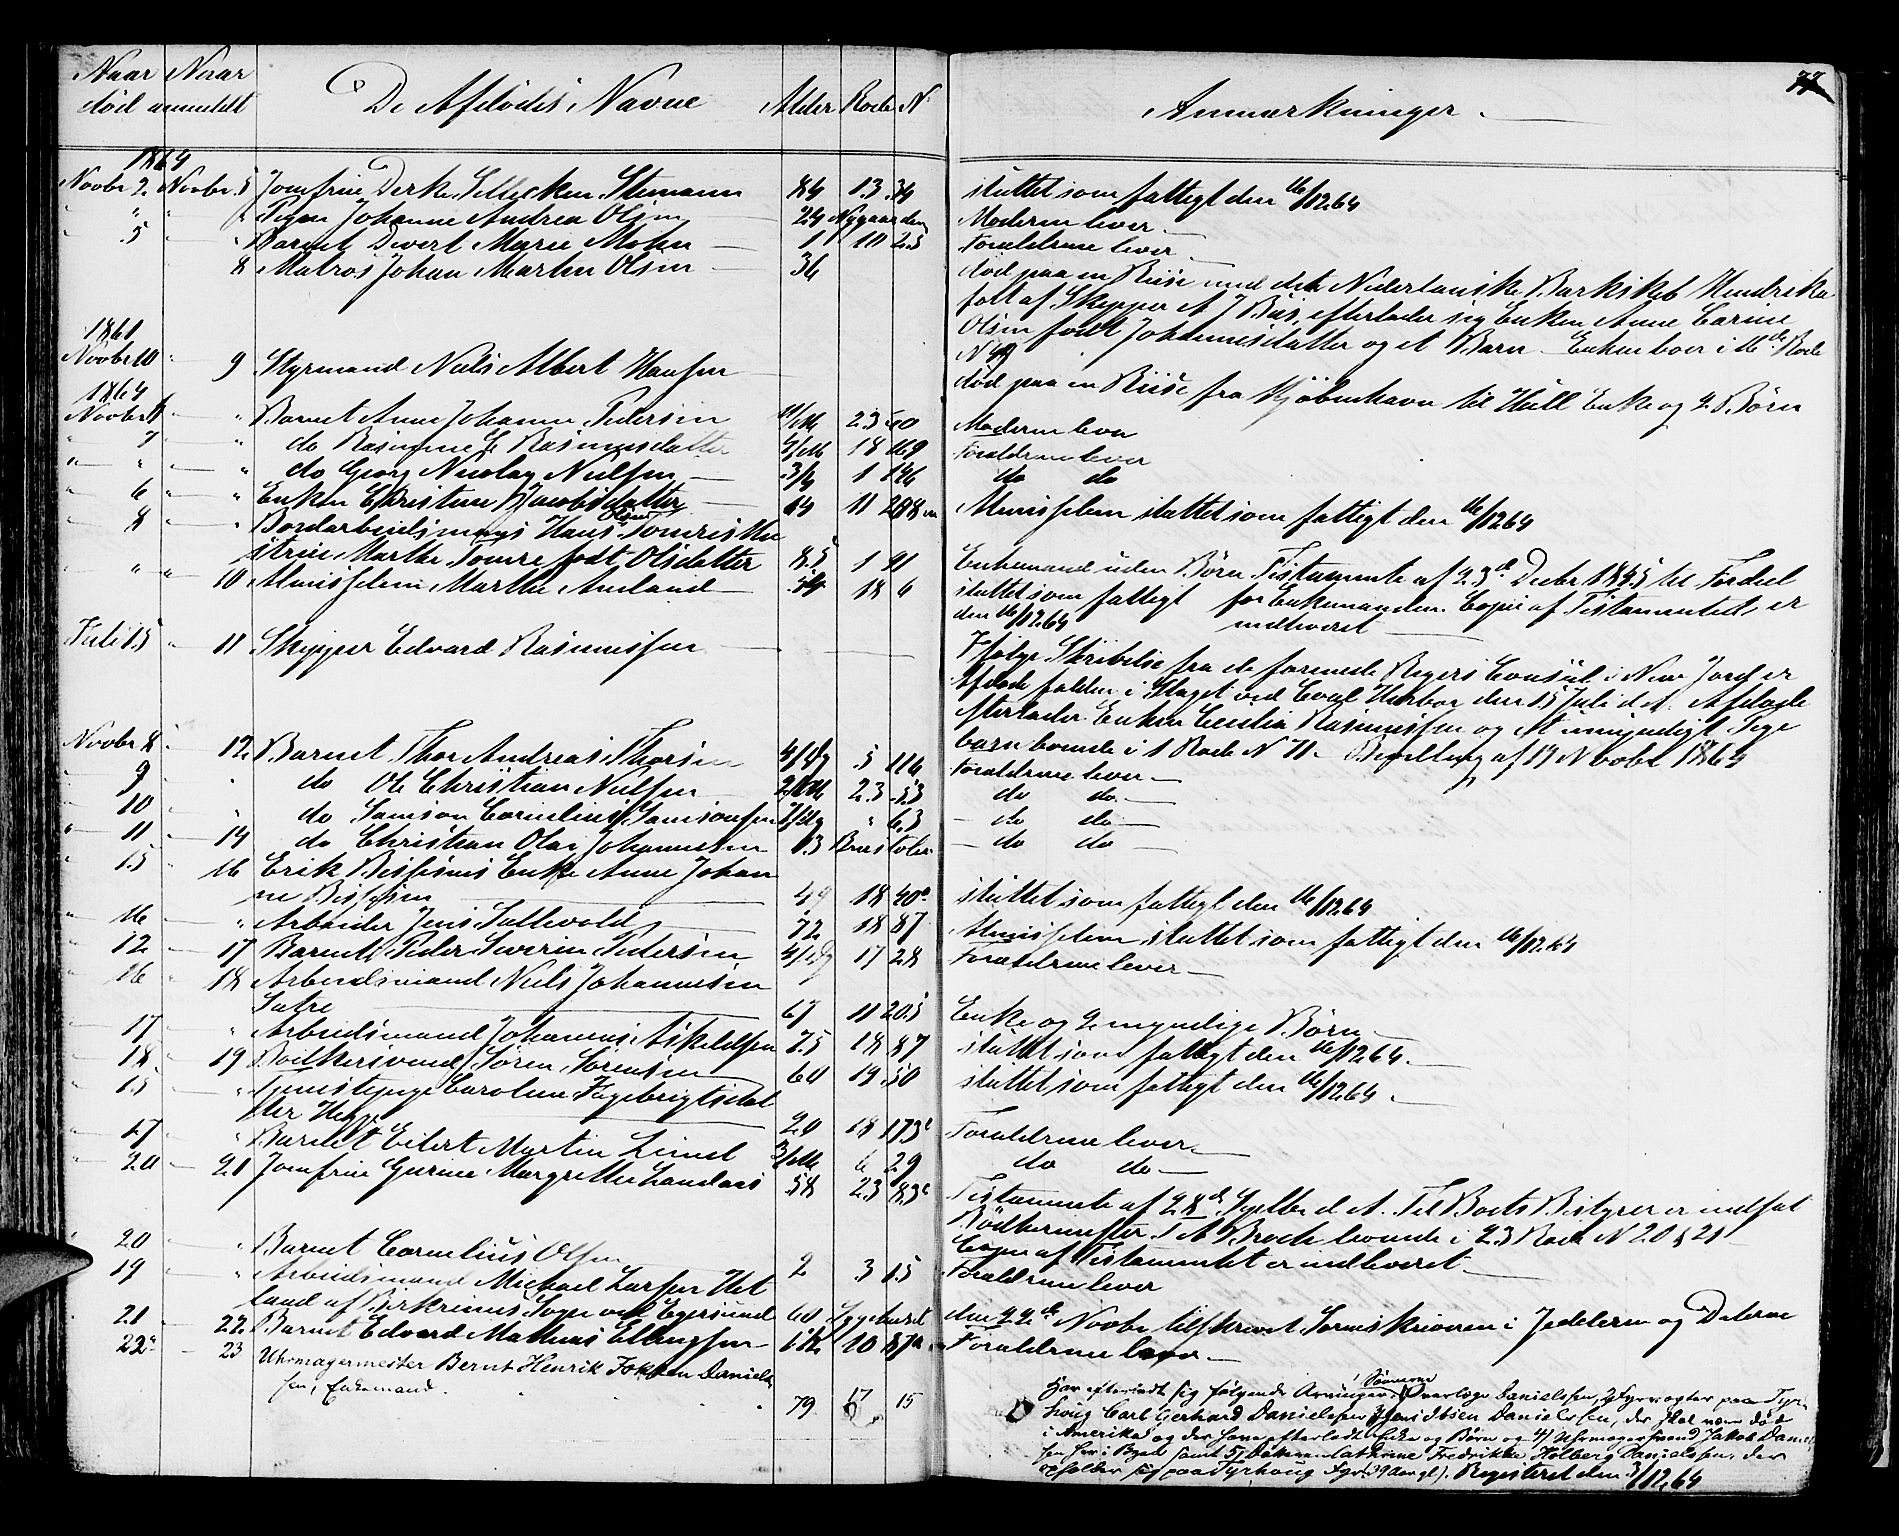 Naar Naar
død anmeldt De Afdødes Navne Alder Rode N. Anmærkninger. 77
1864
Novbr 2. Novbr. 5 Jomfrue Dorthe Stemann 84 13 36 sluttet som fattigt den 16/12 64
" " " Pigen Johanne Andrea Olsen 24 Nygaarden Moderen lever.
5 " " Barnet Divert Marie Mohn 1 10 25 Forældrene lever
8 Matros Johan Martin Olsen 36 død paa en Reise med det Nederlanske Barkskib Hendrika
ført af Skipper A J Bus, efterlader sig Enken Anne Carine
Olsen født Johannesdatter og et Barn. Enken boer i 16de Rode
N 49
1861
Novbr 10 " 9 Styrmand Niels Albert Hansen død paa en Reise fra Kjøbenhavn til Hull Enke og 2 Børn
1864
Novbr " Barnet Anne Johanne Pedersen 11/M 23 50 Moderen lever
" 7 " do Rasmine C Rasmusdatter 4/M 18 169 Forældrene lever
" " " do Georg Nicolay Nielsen 3/4 1 146 do do
" 6 " Enken Christine Jacobsdatter 64 11 208 Almisselem sluttet som fattigt den 16/12 64
8 " Bordarbeidsmands Hans Olsen Tomres Hu
strue Marthe Tomre født Olsdatter 85 1 91 Enkemand uden Børn Testamente af 23de Decbr 1845 til Fordeel
for Enkemanden. Copie af Testamentet er
indleveret
" " 10 Almisselem Marthe Amland 18 6 sluttet som fattigt
den 16/12 64
Juli 15 " 11 Skipper Edvard Rasmussen Ifølge Skrivelse fra de forenede Rigers Consul i New Jork er
Afdøde falden i Slaget ved Coal Harbor den 15 Juli d. A. Afdøde
efterlader Enken Cecilia Rasmussen og et umyndigt Pige
barn boende i 1 Rode N 71. Bevilling af 19 Novbr 1864
Novbr 8 12 Barnet Thor Andreas Thorsen 4/Dg 5 116 Forældrene lever
9 " do Ole Christian Nielsen 23 53 do do
10 " do Samson Cornelius Samsonsen " 63 do do
" 11 14 do Christian Olai Johannesen 63 do do
" 15 16 Erik Bessesens Enke Anne Johan
ne Bessesen 49 18 40a sluttet som fattigt den 16/12 64
" 16 " Arbeider Jens Sallevold 72 18 87 Almisselem sluttet som fattigt den 16/12 64
" 12 17 Barnet Peder Severin Pedersen 4/Dg 17 28 Forældrene lever
" 16 18 Arbeidsmand Niels Johannesen
Satre 67 11 205 Enke og 2 myndige Børn
" 17 " Arbeidsmand Johannes Askeldsen 75 18 87 sluttet som fattigt den 16/12 64.
" 18 19 Bødkersvend Søren Sørensen 60 19 50 sluttet som fattigt den 16/12 64.
" 15 " Tjenestepige Caroline Fagebrigtsdat
ter Hegg 20 18 173c Forældrene lever
" 17 " Barnet Eilert Martin Lund 3/M 6 29 do do
" 20 21 Jomfrue Gurine Margrethe Landaas 58 23 83c Testamente af 28de Septbr d. A. Til Boets Bestyrer er indsat
Bødkermester T A Broch boende i 23 Rode N 20 & 21
Copie af Testamentet er indleveret.
20 " Barnet Cornelius Olsen 2 3 15 Forældrene lever
19 " Arbeidsmand Michael Larsen Het
land af Birkrims Sogn ved Egersund 60 Sygehuset den 22de Novbr tilskrevet Sorenskriveren i Jæderen og Dalerne
21 22 Barnet Edvard Mathias Ellingsen 10 87a Forældrene lever.
22de 23 Uhrmagermester Bernt Henrik Fokken Daniels
sen, Enkemand. 79 17 15 Har efterladt sig følgende Arvinger: Sønnerne 1) Overlæge Danielssen, 2) Fyrvogter paa Fyr
houg Carl Gerhard Danielssen 3) Jens Ibsen Danielssen, der skal være død
i Amerika og der have efterladt Enke og Børn og 4) Uhrmagersvend Jakob Daniels
sen her i Byen samt 5) Datteren Cathrine Fredrikke Holberg Danielssen, der
opholder sig paa Fyrhoug Fyr (39 Aar gl.). Registeret den 3/12 64